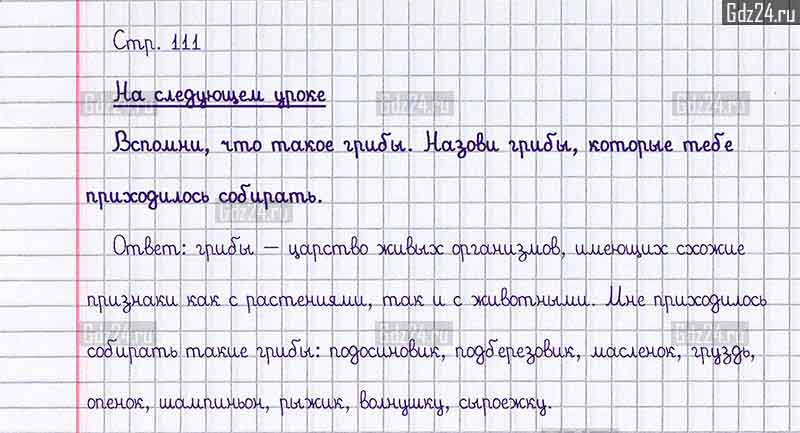 Gdz24.ru
Стр. 111
На следующем уроке
Gdz24.ru Gdz24.ru Gdz24.ru
Вспомни, что такое грибы. Назови грибы, которые тебе
приходилось собирать.
Gdz24.ru
Ответ: грибы — царство живых организмов, имеющих схожие
признаки как с растениями, так и с животными. Мне приходилось
Gdz24.ru Gdz24.ru Gdz24.ru
собирать такие грибы: подосиновик, подберезовик, масленок, груздь,
опенок, шампиньон, рыжик, волнушку, сыроежку.